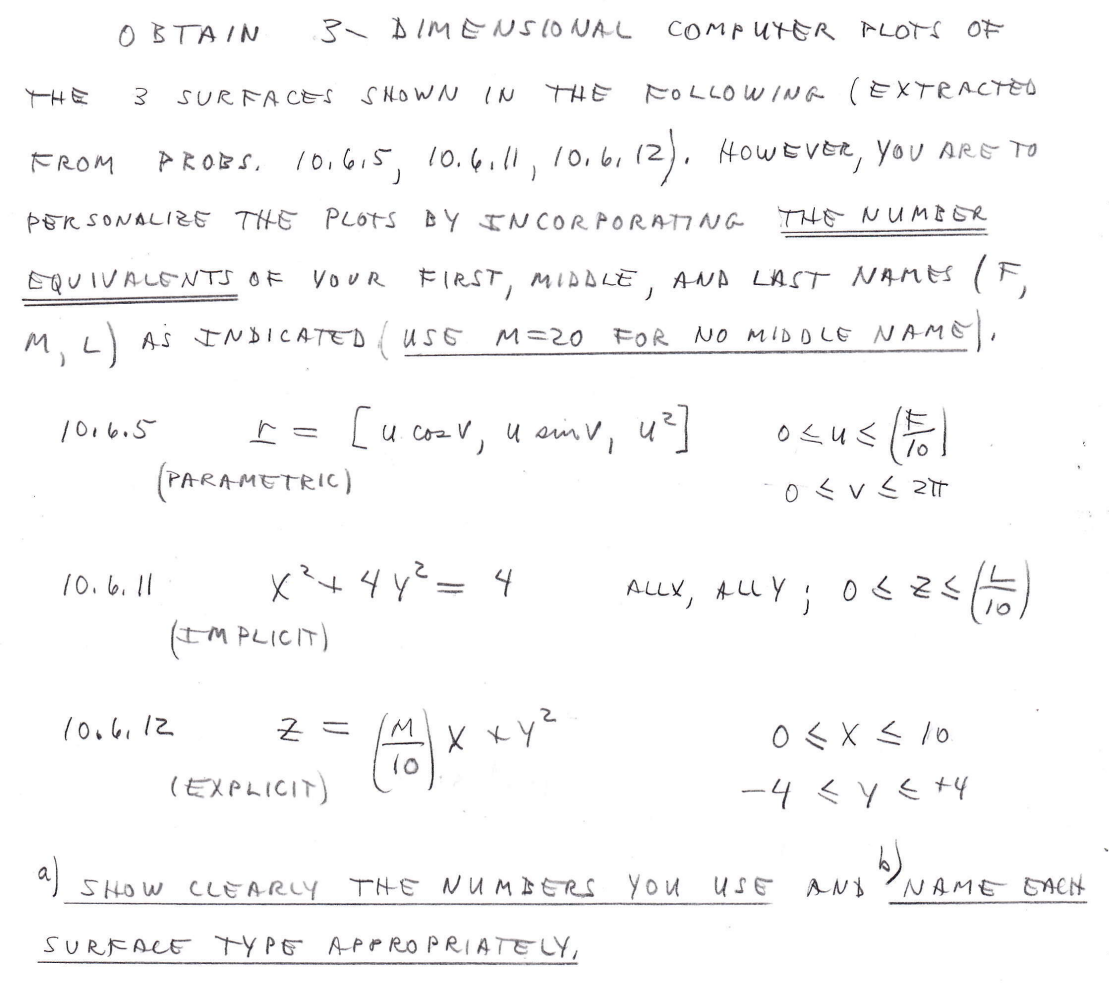 OBTAIN 3-DIMENSIONAL COMPUTER PLOTS OF
THE 3 SURFACES SHOWN IN THE FOLLOWING (EXTRACTED
FROM PROBS. 10.6.5, 10.6.11, 10.6.12). HOWEVER, YOU ARE TO
PERSONALIZE THE PLOTS BY INCORPORATING THE NUMBER
EQUIVALENTS OF YOUR FIRST, MIDDLE, AND LAST NAMES (F,
M, L) AS INDICATED (USE M=20 FOR NO MIDDLE NAME).
10.6.5 r = [u cos v, u sin v, u²] 0≤u≤(F/10)
(PARAMETRIC) 0≤v≤2π
10.6.11 x²+4y²=4 ALL X, ALL Y; 0≤z≤(L/10)
(IMPLICIT)
10.6.12 z = (M/10) x + y² 0≤x≤10
(EXPLICIT) -4≤y≤+4
a) SHOW CLEARLY THE NUMBERS YOU USE AND b) NAME EACH
SURFACE TYPE APPROPRIATELY.